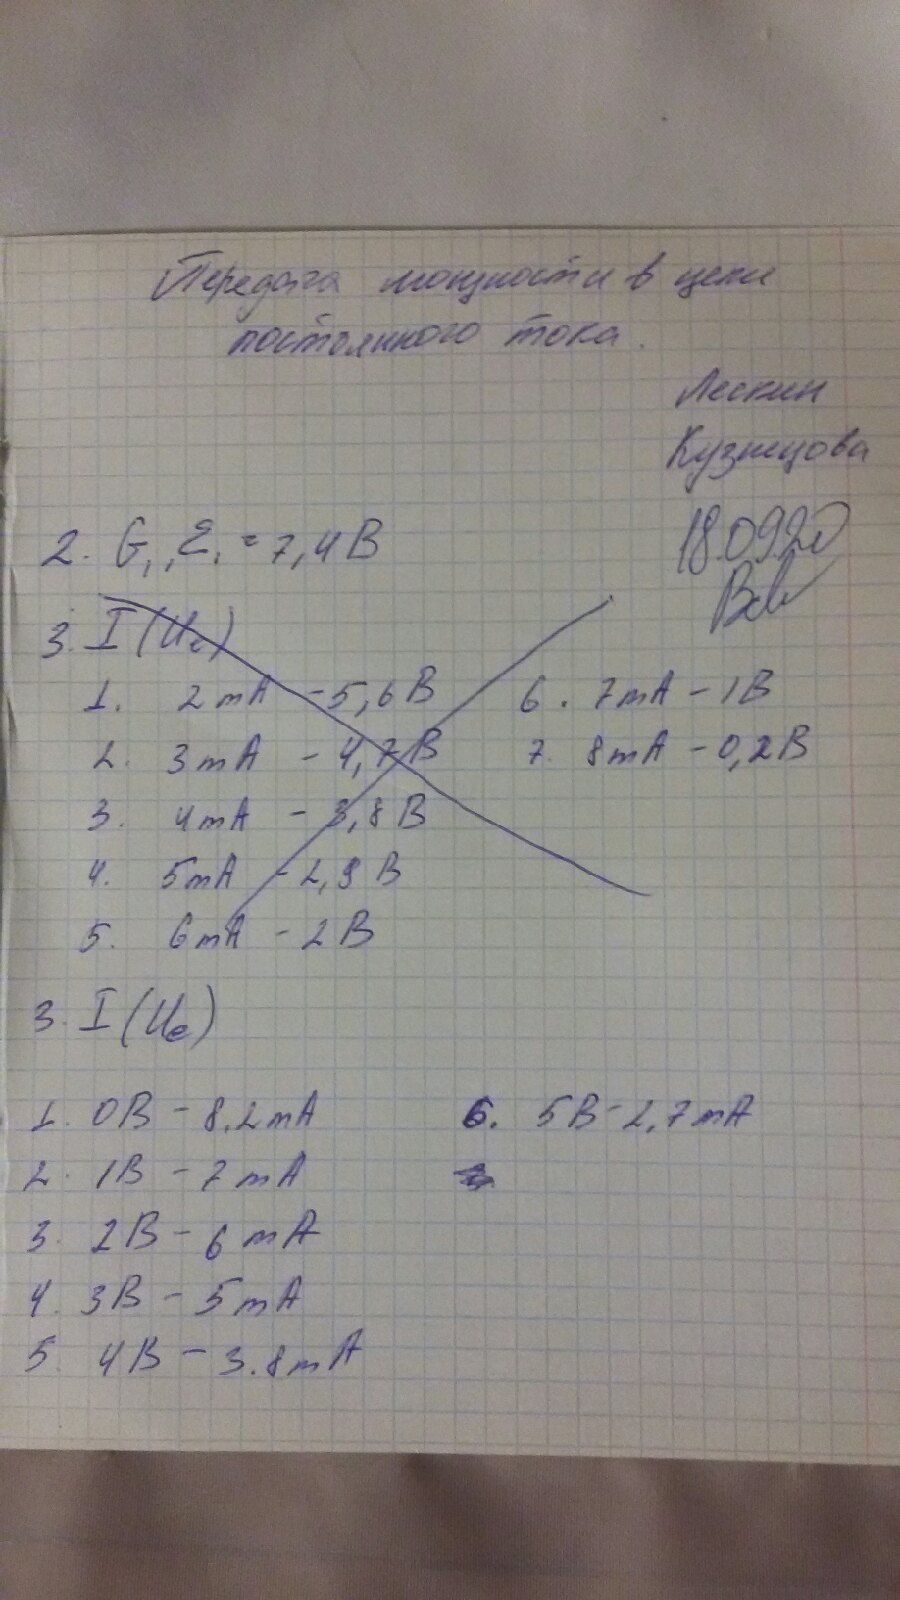 Передача мощности в цепи
постоянного тока.
Лескин
Кузнецова
18.09.20
2. G₁, Ɛ₁ = 7,4 В
3. I (Ue)
1. 2 mA - 5,6 В
2. 3 mA - 4,7 В
3. 4 mA - 3,8 В
4. 5 mA - 2,9 В
5. 6 mA - 2 В
6. 7 mA - 1 В
7. 8 mA - 0,2 В
3. I (Ue)
1. 0 В - 8.2 mA
2. 1 В - 7 mA
3. 2 В - 6 mA
4. 3 В - 5 mA
5. 4 В - 3.8 mA
6. 5 В - 2,7 mA